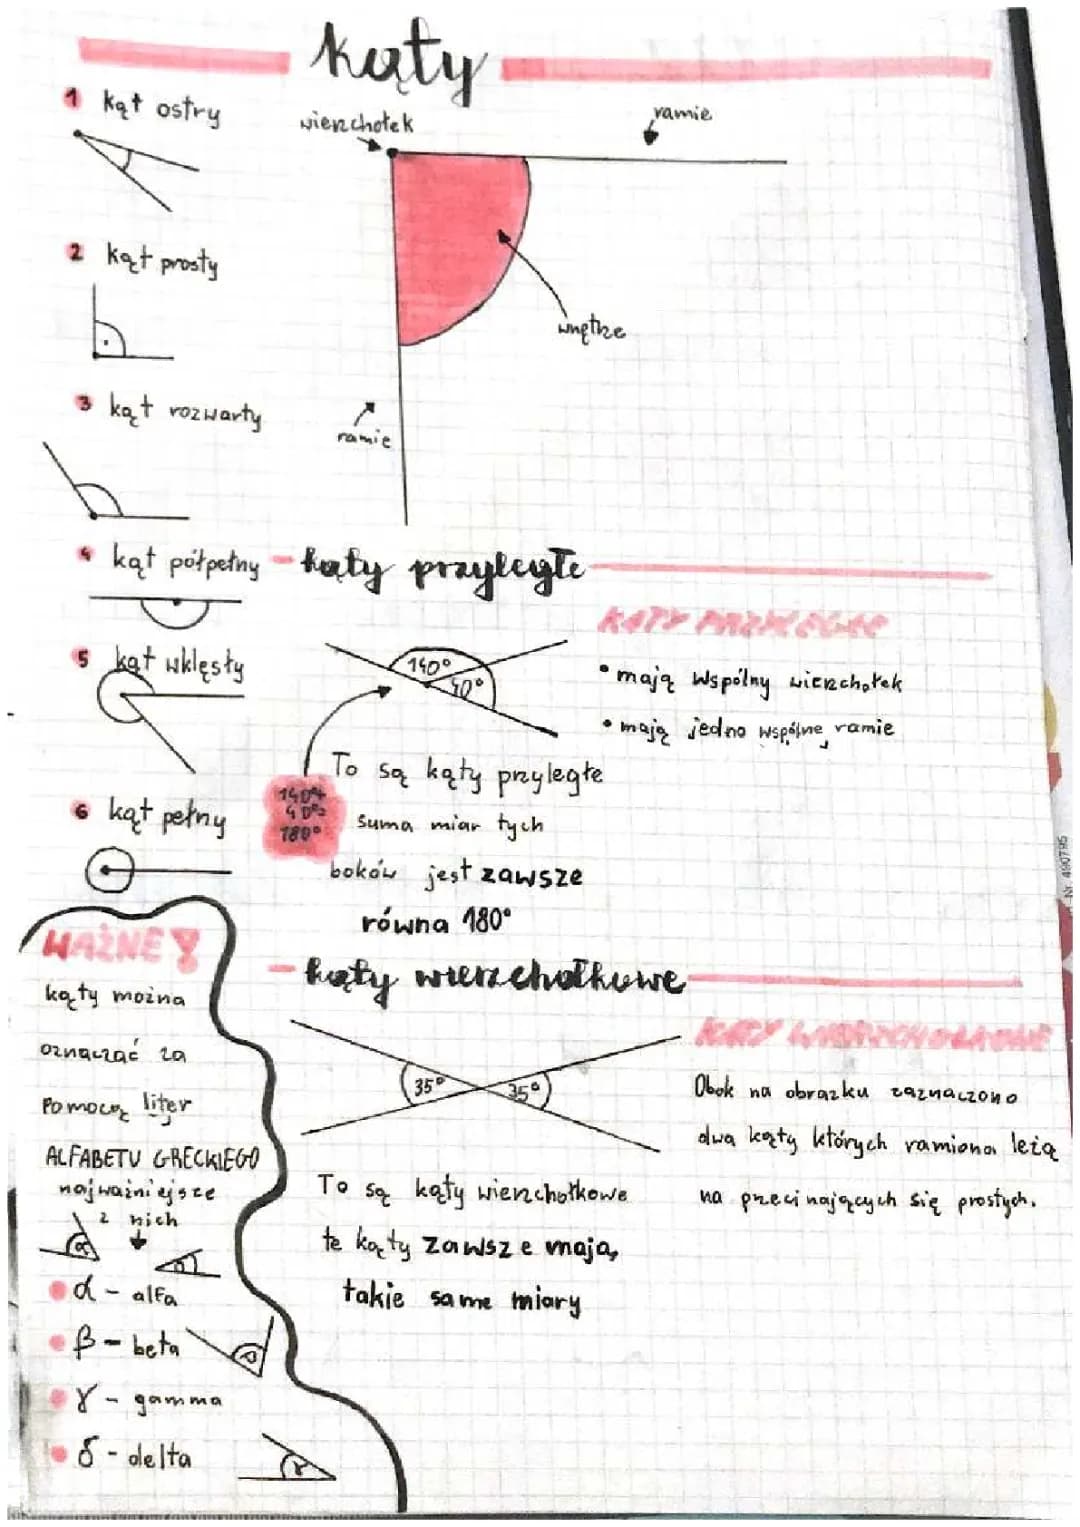 kąty
1 kąt ostry
wierzchołek
ramie
2 kąt prosty
wnętrze
3 kąt rozwarty
ramie
4 kąt półpełny
kąty przyległe
KĄTY PRZYLEGŁE
5 kąt wklęsły
140°
40°
• mają wspólny wierzchołek
• mają jedno wspólne ramie
To są kąty przyległe
140°+
40°=
180°
6 kąt pełny
suma miar tych
boków jest zawsze
równa 180°
WAŻNE!
kąty można
oznaczać za
pomocą liter
ALFABETU GRECKIEGO
najważniejsze
z nich
α
α - alfa
β - beta
γ - gamma
δ - delta
kąty wierzchołkowe
KĄTY WIERZCHOŁKOWE
35°
35°
Obok na obrazku zaznaczono
dwa kąty których ramiona leżą
na przecinających się prostych.
To są kąty wierzchołkowe
te kąty zawsze mają
takie same miary
Nr 490795